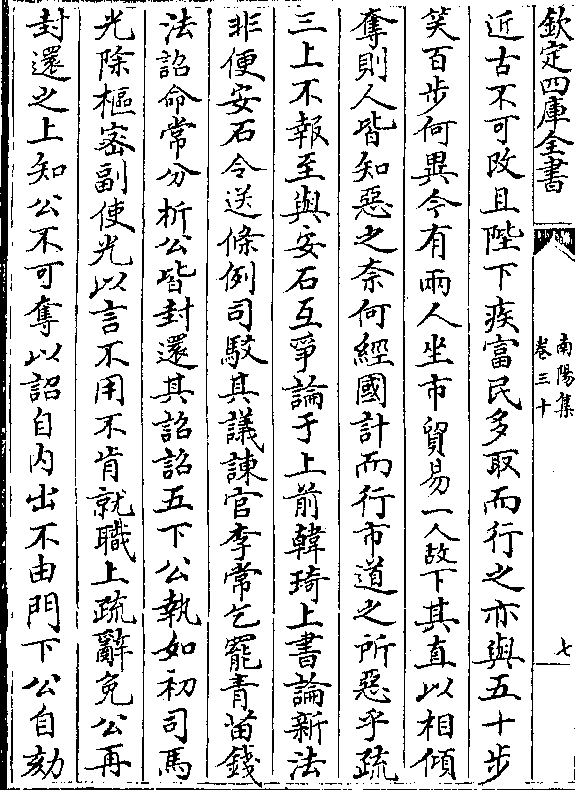 欽定四庫全書
南陽集
卷三十
七
近古不可改且陛下疾富民多取而行之亦與五十步
笑百步何異今有兩人坐市貿易一人故下其直以相傾
奪則人皆知惡之奈何經國計而行市道之所惡乎疏
三上不報至與安石互爭論于上前韓琦上書論新法
非便安石令送條例司駁其議諫官李常乞罷青苗錢
法詔命常分析公皆封還其詔詔五下公執如初司馬
光除樞密副使光以言不用不肯就職上疏辭免公再
封還之上知公不可奪以詔自内出不由門下公自劾